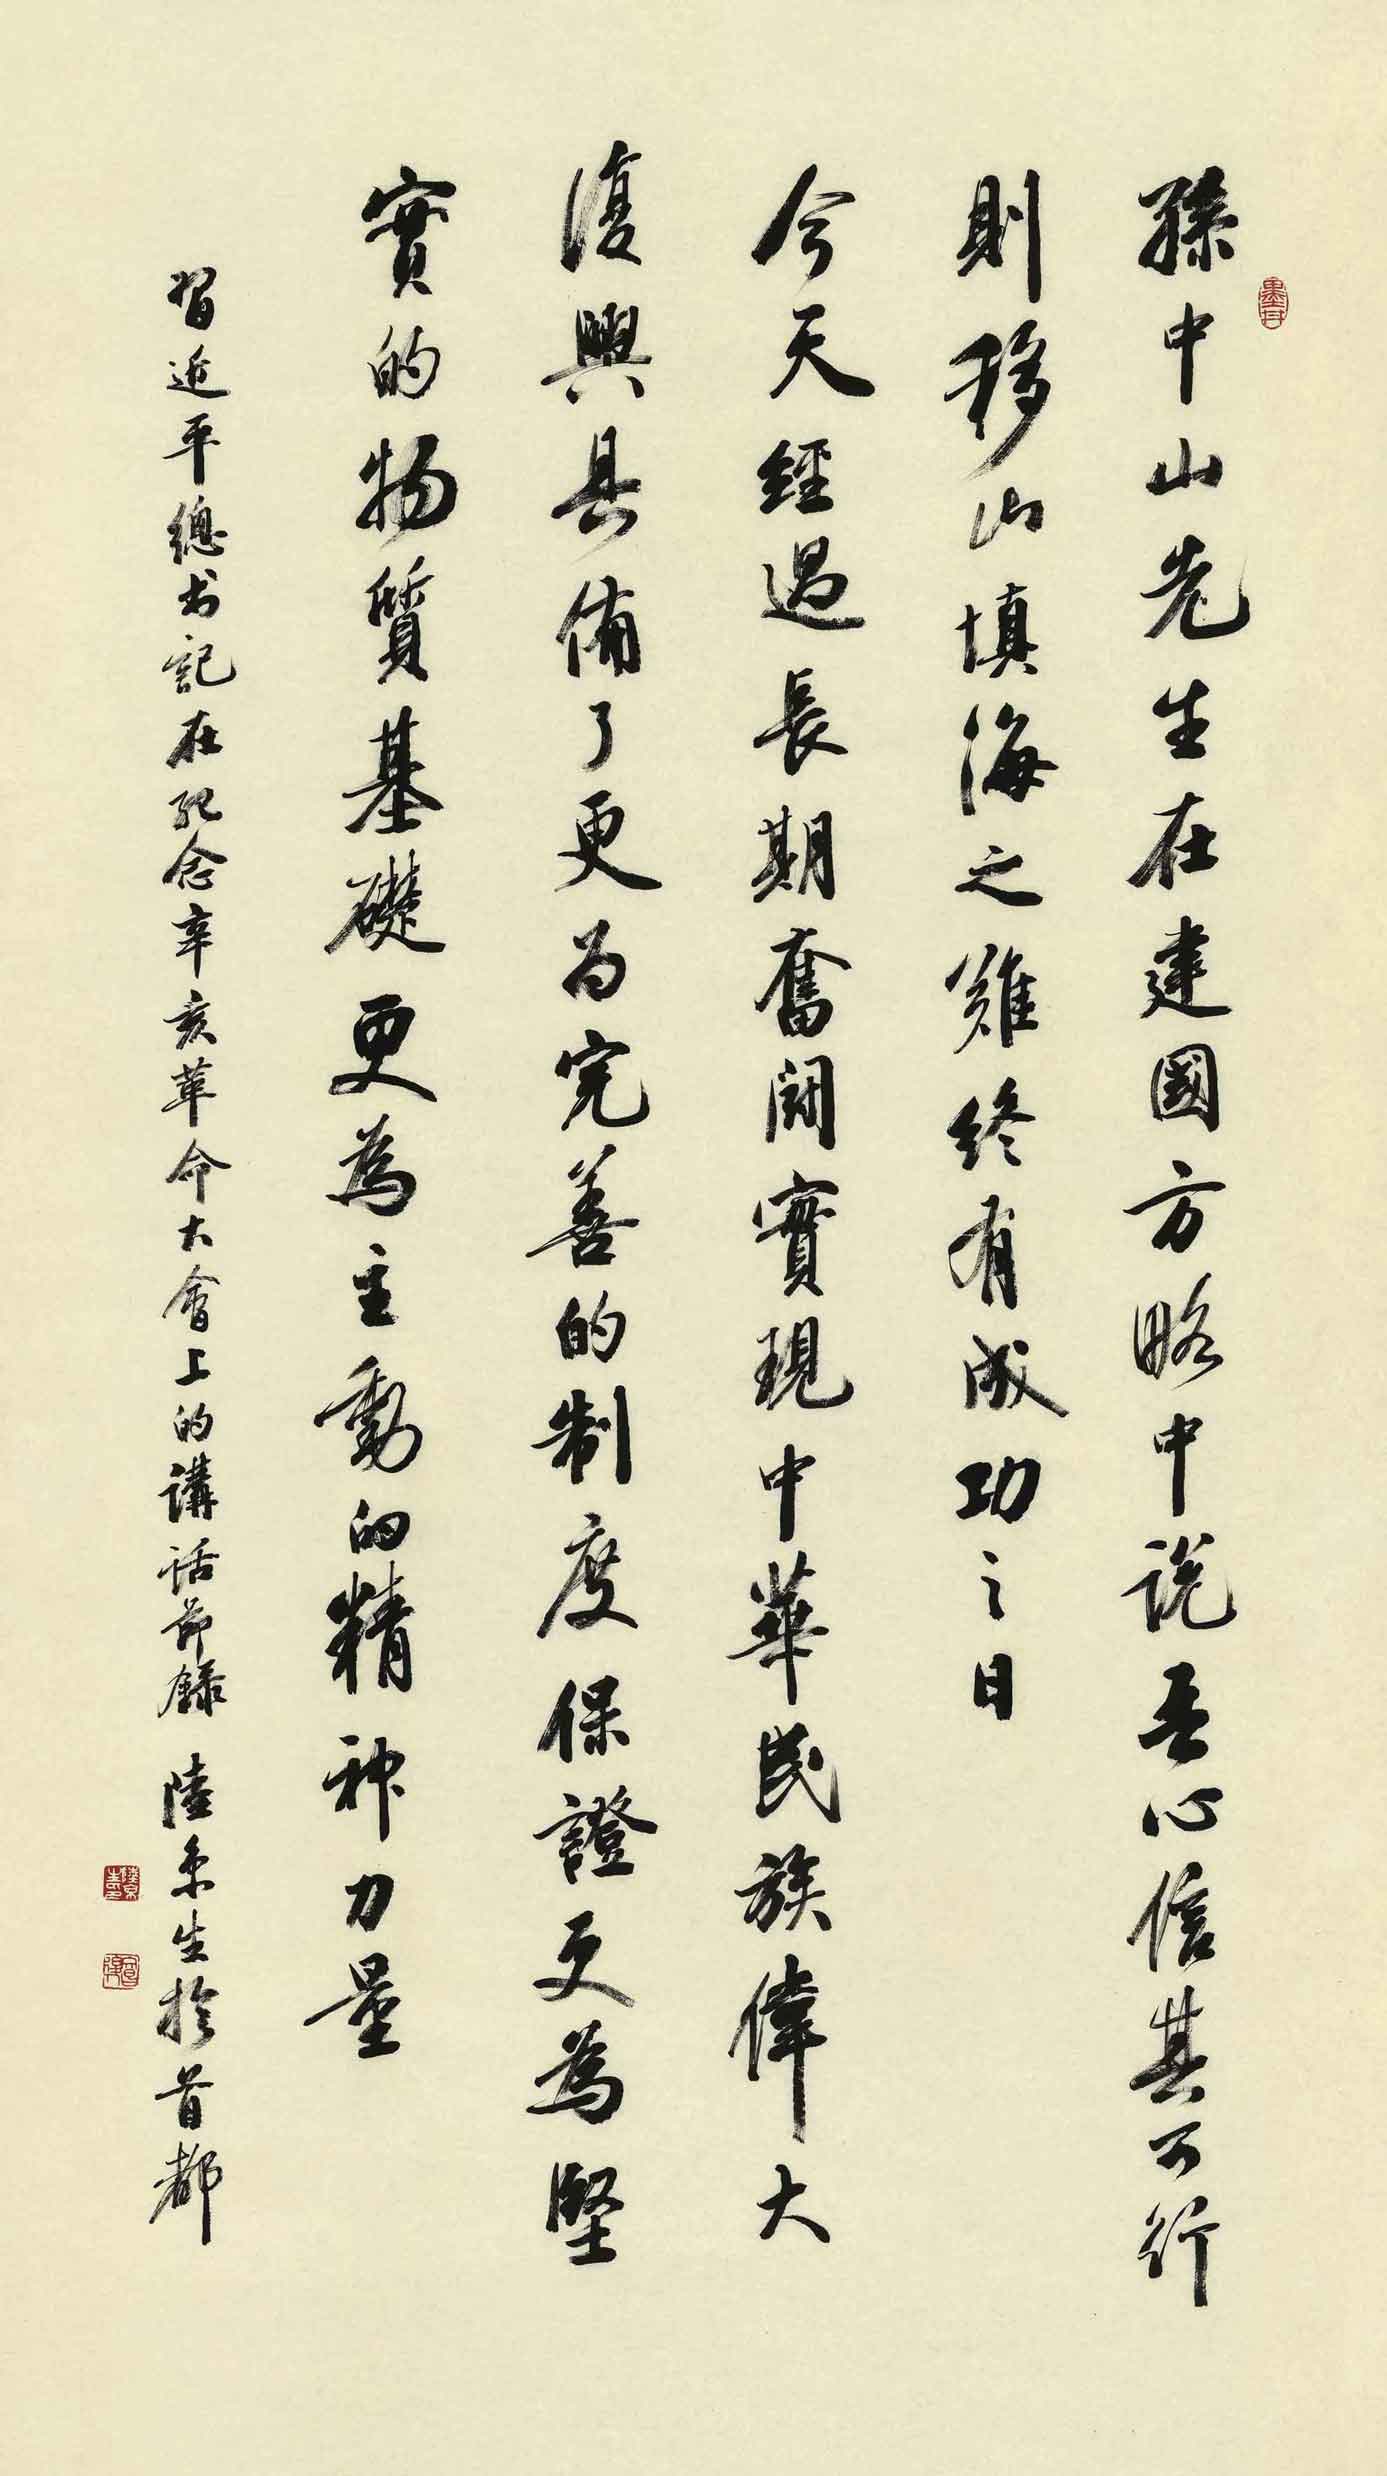 孫中山先生在建國方略中説吾心信其可行
則移山填海之難終有成功之日
今天經過長期奮鬭實現中華民族偉大
復興具備了更为完善的制度保證更為堅
實的物質基礎更為主動的精神力量
習近平總书記在紀念辛亥革命大會上的講話節録 陸京生於首都